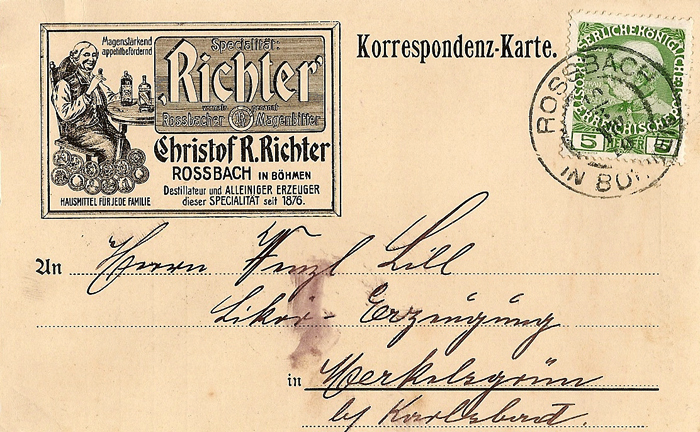 Magenstärkend
appetitbefördernd
Specialität:
„Richter"
vormals genannt
Rossbacher Magenbitter
Christof R. Richter
ROSSBACH IN BÖHMEN
Destillateur und ALLEINIGER ERZEUGER
dieser SPECIALITÄT seit 1876.
HAUSMITTEL FÜR JEDE FAMILIE
Korrespondenz-Karte.
5 HELLER
ROSSBACH
IN BÖH
An Herrn Wenzl Lill
Likör-Erzeugung
in Merkelsgrün
by Karlsbad.